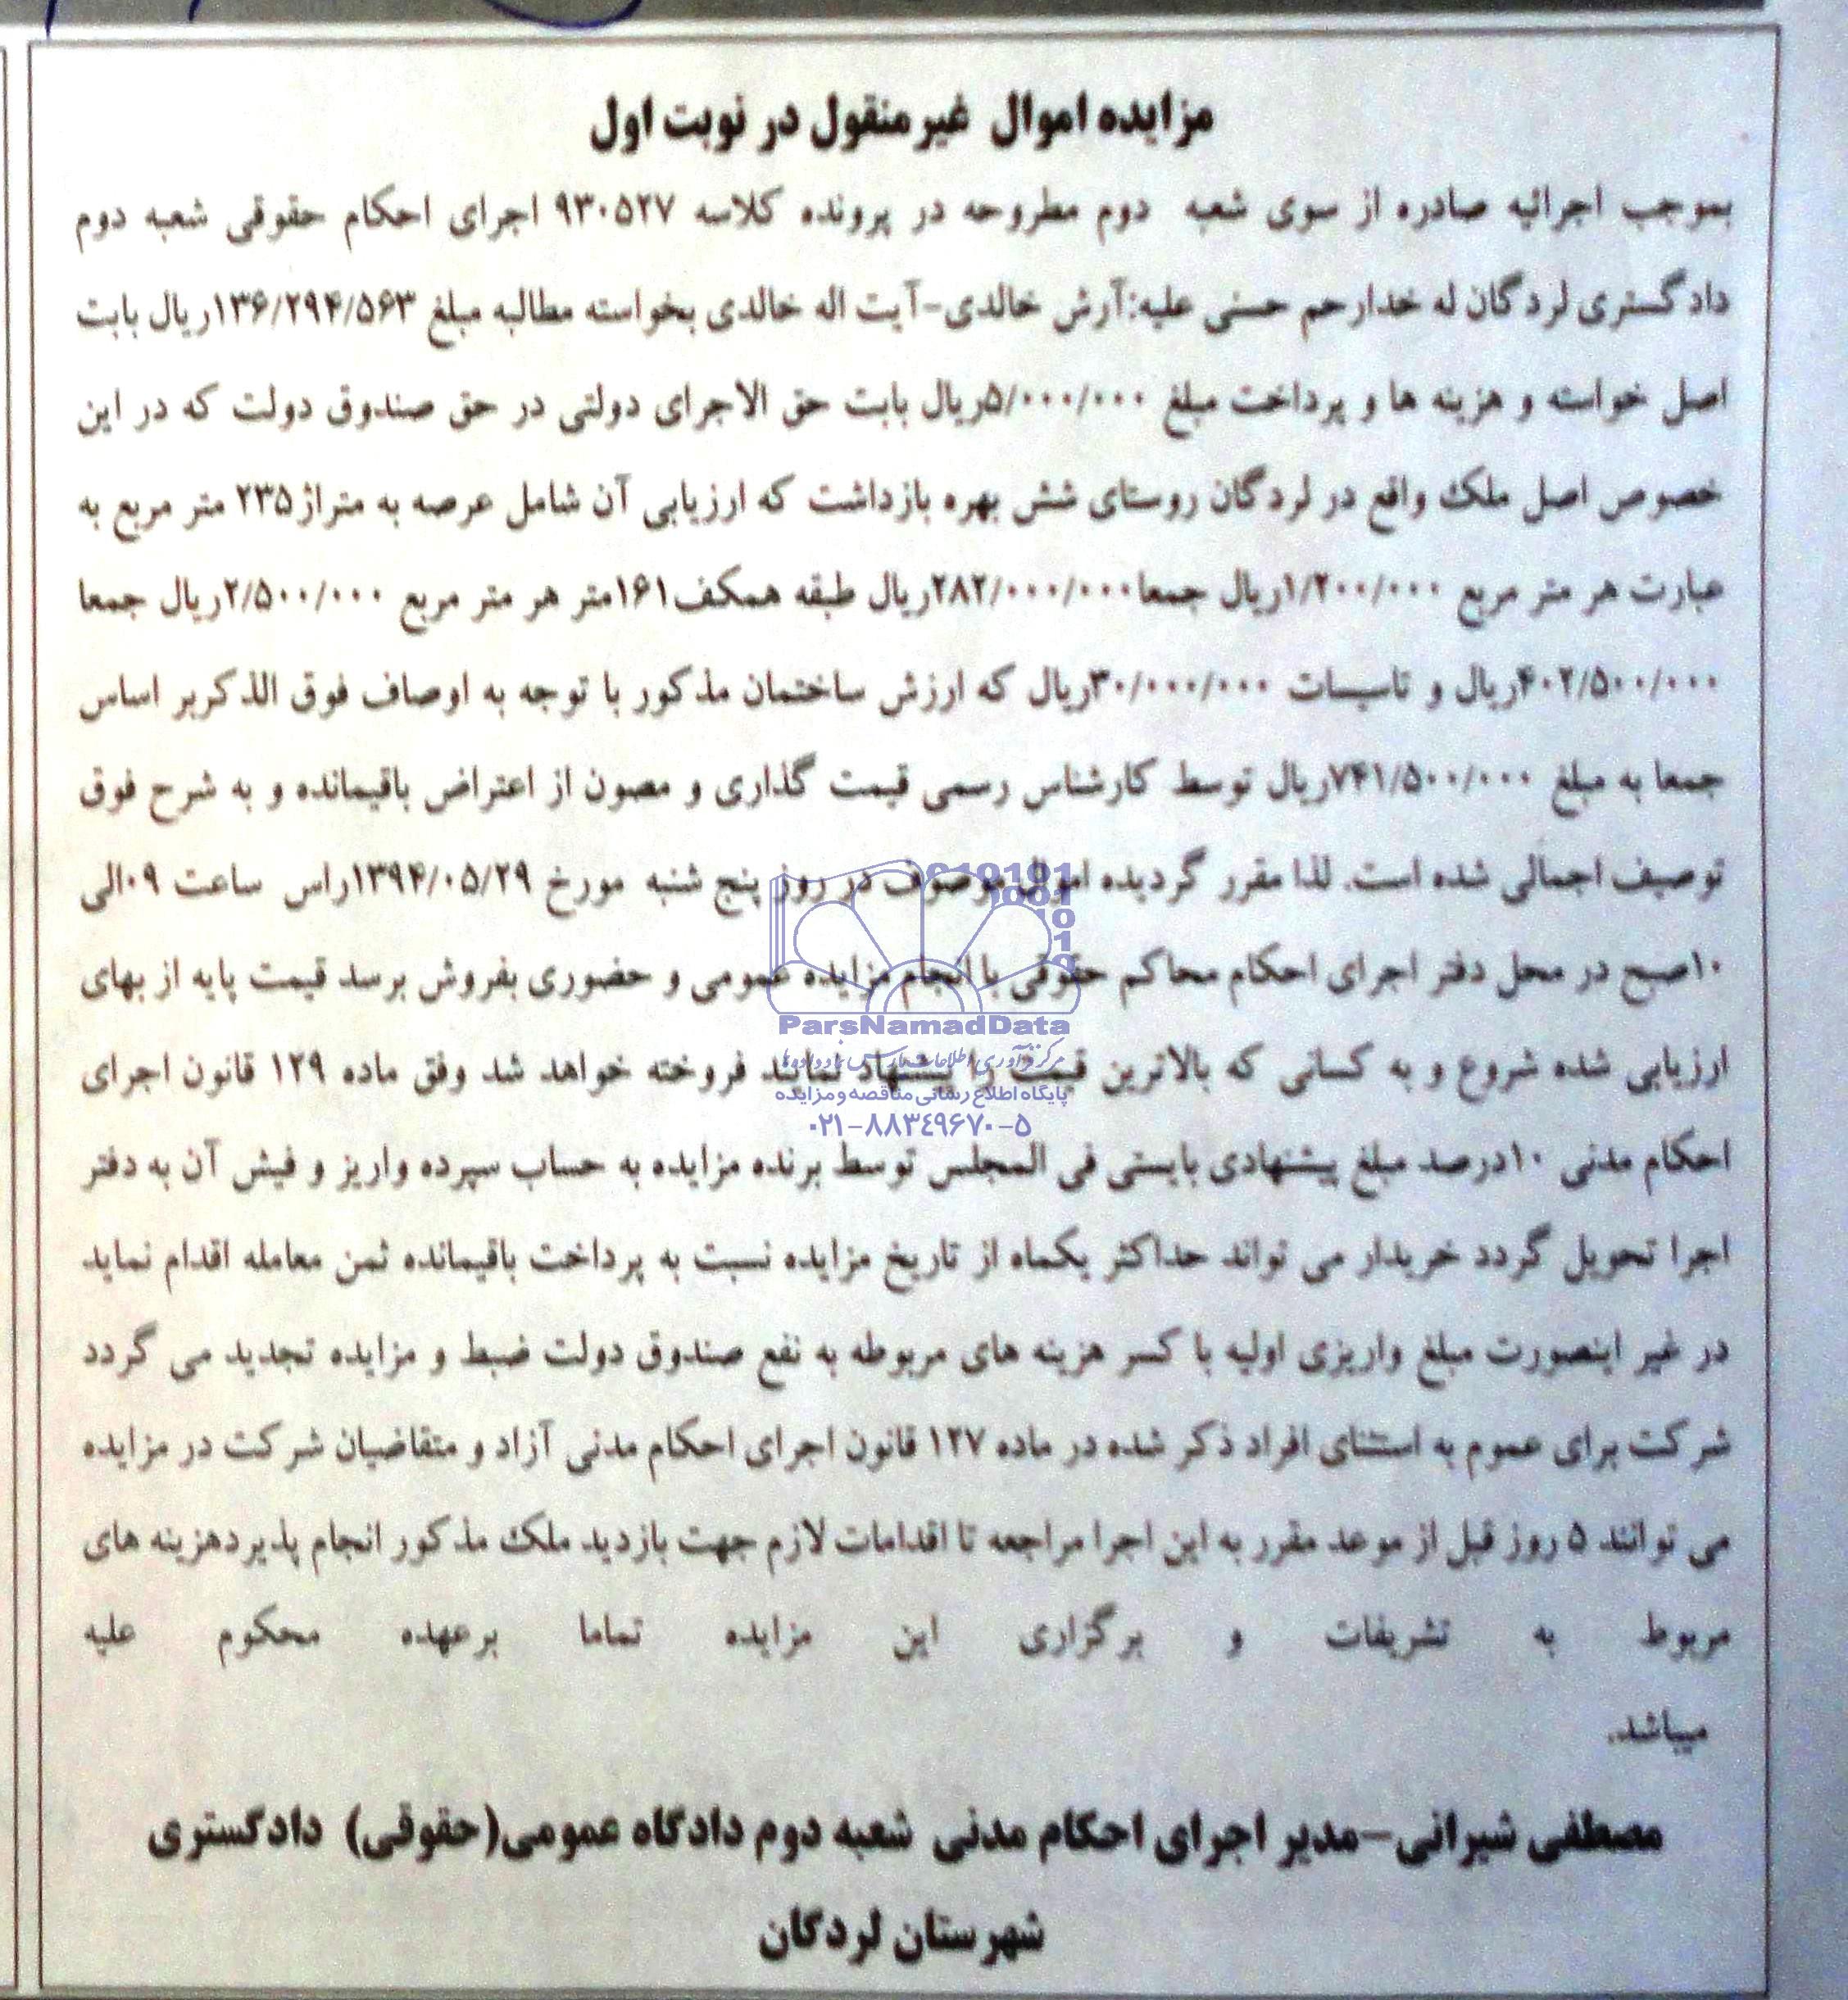 مزایده اموال غیرمنقول در نوبت اول
بموجب اجرائیه صادره از سوی شعبه دوم مطروحه در پرونده کلاسه ۹۳۰۵۲۷ اجرای احکام حقوقی شعبه دوم
دادگستری لردگان له خدارحم حسنی علیه:آرش خالدی-آیت اله خالدی بخواسته مطالبه مبلغ ۱۳۶/۲۹۴/۵۶۳ریال بابت
اصل خواسته و هزینه ها و پرداخت مبلغ ۵/۰۰۰/۰۰۰ریال بابت حق الاجرای دولتی در حق صندوق دولت که در این
خصوص اصل ملک واقع در لردگان روستای شش بهره بازداشت که ارزیابی آن شامل عرصه به متراژ۲۳۵ متر مربع به
عبارت هر متر مربع ۱/۲۰۰/۰۰۰ریال جمعا۲۸۲/۰۰۰/۰۰۰ریال طبقه همکف۱۶۱متر هر متر مربع ۲/۵۰۰/۰۰۰ریال جمعا
۴۰۲/۵۰۰/۰۰۰ریال و تاسیسات ۳۰/۰۰۰/۰۰۰ریال که ارزش ساختمان مذکور با توجه به اوصاف فوق الذکربر اساس
جمعا به مبلغ ۷۴۱/۵۰۰/۰۰۰ریال توسط کارشناس رسمی قیمت گذاری و مصون از اعتراض باقیمانده و به شرح فوق
توصیف اجمالی شده است. لذا مقرر گردیده اموال موصوف در روز پنج شنبه مورخ ۱۳۹۴/۰۵/۲۹راس ساعت ۰۹الی
۱۰صبح در محل دفتر اجرای احکام محاکم حقوقی با انجام مزایده عمومی و حضوری بفروش برسد قیمت پایه از بهای
ارزیابی شده شروع و به کسانی که بالاترین قیمت را پیشنهاد نمایند فروخته خواهد شد وفق ماده ۱۲۹ قانون اجرای
احکام مدنی ۱۰درصد مبلغ پیشنهادی بایستی فی المجلس توسط برنده مزایده به حساب سپرده واریز و فیش آن به دفتر
اجرا تحویل گردد خریدار می تواند حداکثر یکماه از تاریخ مزایده نسبت به پرداخت باقیمانده ثمن معامله اقدام نماید
در غیر اینصورت مبلغ واریزی اولیه با کسر هزینه های مربوطه به نفع صندوق دولت ضبط و مزایده تجدید می گردد
شرکت برای عموم به استثنای افراد ذکر شده در ماده ۱۲۷ قانون اجرای احکام مدنی آزاد و متقاضیان شرکت در مزایده
می توانند ۵ روز قبل از موعد مقرر به این اجرا مراجعه تا اقدامات لازم جهت بازدید ملک مذکور انجام پذیردهزینه های
مربوط به تشریفات و برگزاری این مزایده تماما برعهده محکوم علیه
میباشد.
مصطفی شیرانی-مدیر اجرای احکام مدنی شعبه دوم دادگاه عمومی(حقوقی) دادگستری
شهرستان لردگان
ParsNamadData
پایگاه اطلاع رسانی مناقصه و مزایده
۰۲۱-۸۸۳۴۹۶۷۰-۵